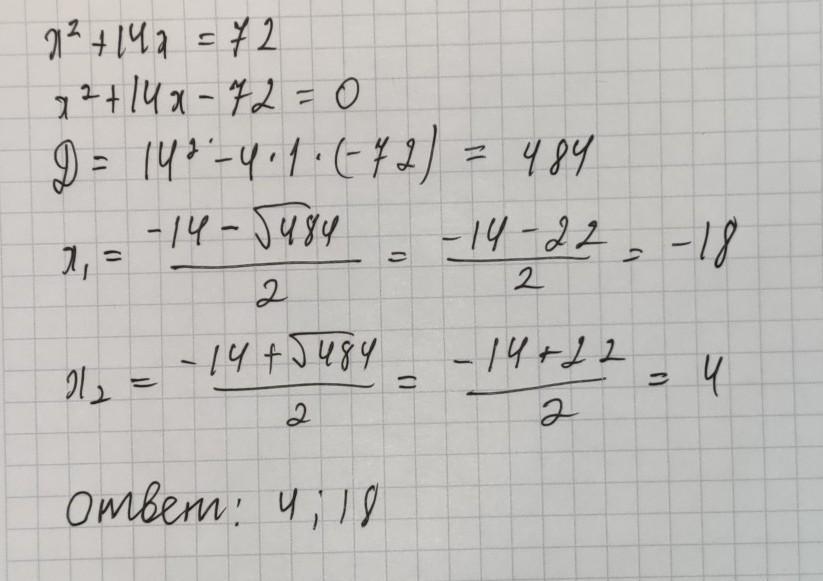 x² + 14x = 72
x² + 14x - 72 = 0
D = 14² - 4 · 1 · (-72) = 484
x₁ = (-14 - √484)/2 = (-14 - 22)/2 = -18
x₂ = (-14 + √484)/2 = (-14 + 22)/2 = 4
Ответ: 4; 18